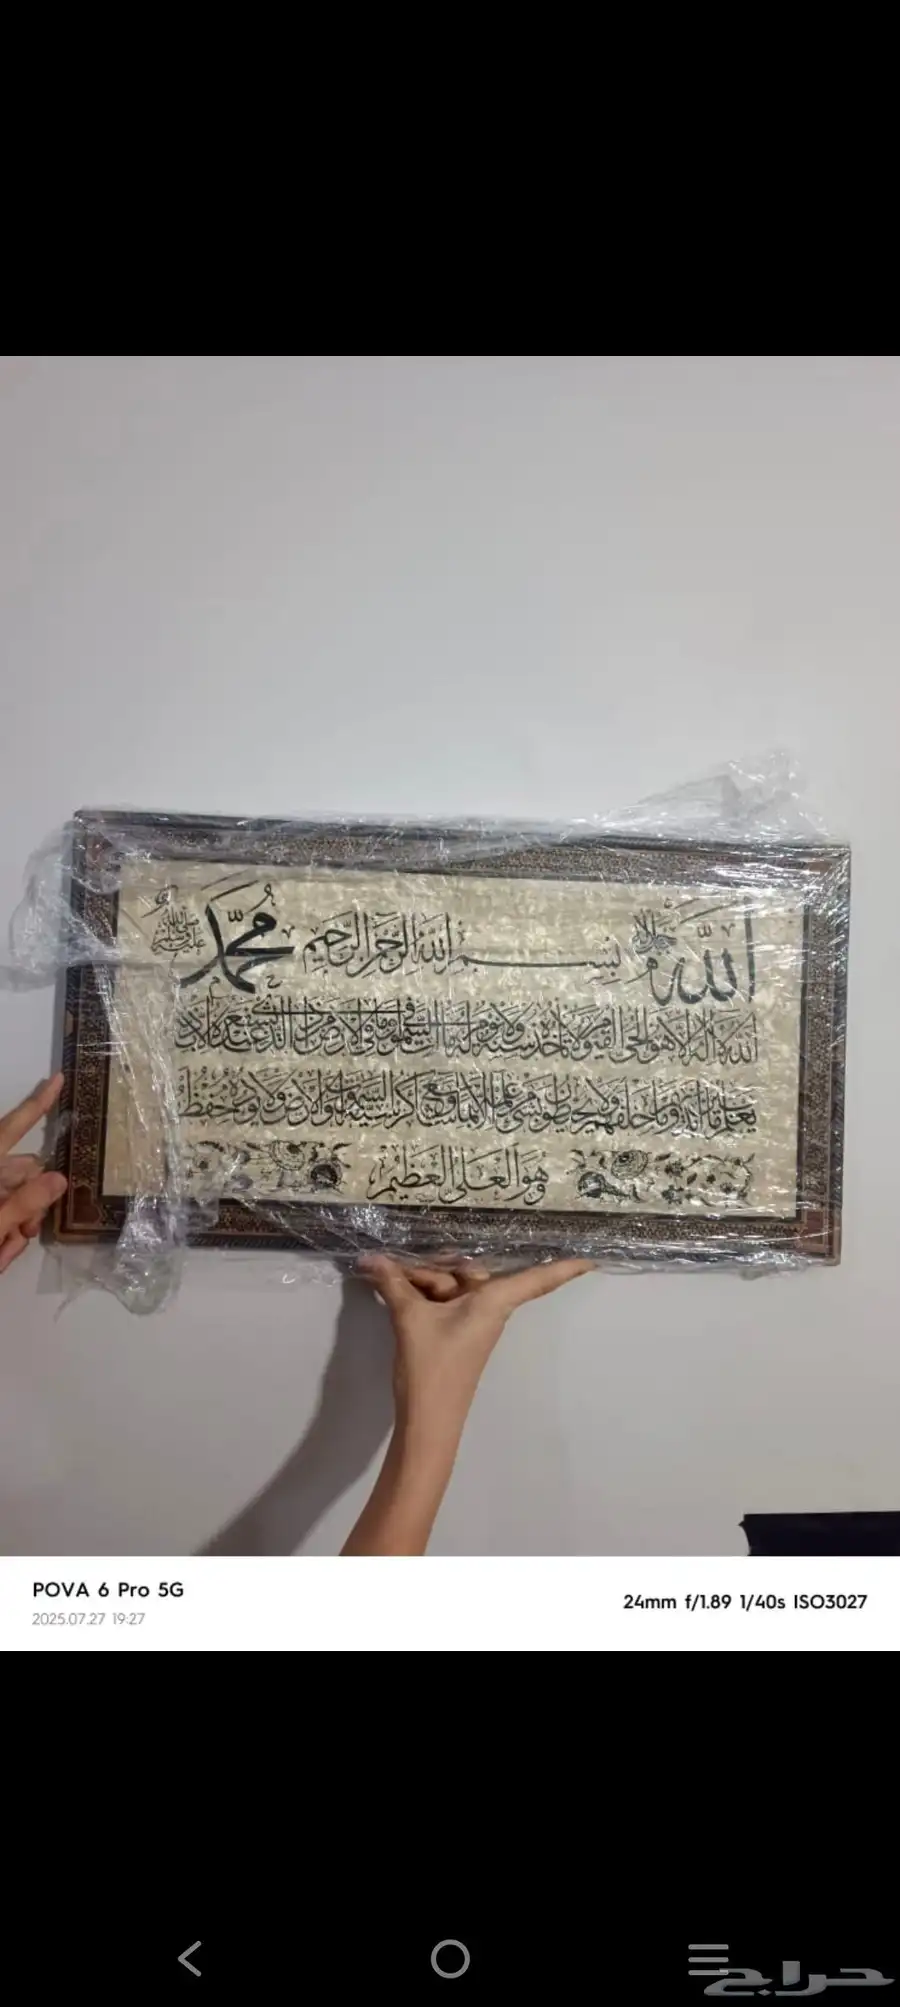 الله جل جلاله بسم الله الرحمن الرحيم محمد صلى الله عليه وسلم
الله لا إله إلا هو الحي القيوم لا تأخذه سنة ولا نوم له ما في السموات وما في الأرض من ذا الذي يشفع عنده إلا
يعلم ما خلفهم ولا يحيطون بشيء من علمه إلا بما كرسيه السموات والأرض ولا يؤده حفظهما
وهو العلي العظيم
POVA 6 Pro 5G
2025.07.27 19:27
24mm f/1.89 1/40s ISO3027
حراج